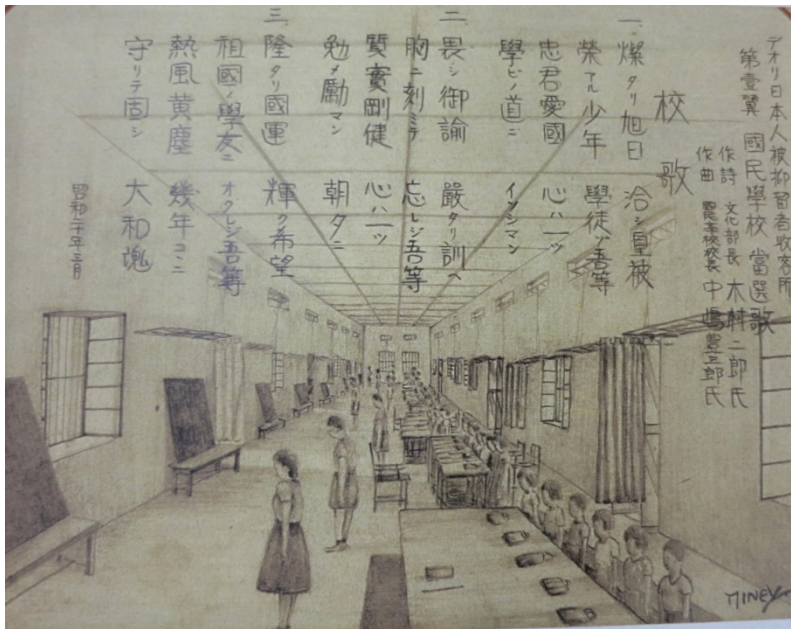 デオリ日本人被抑留者收容所
第壹翼 國民學校 當選歌
作詩 文化部長 木村二郎氏
作曲 校校長 中嶋 郎氏
校歌
一、燦タリ旭日 洽シ皇被
榮アル少年 學徒ゾ吾等
忠君愛國 心ハ一ツ
學ビノ道ニ イソシマン
二、畏シ御諭 嚴タリ訓ヘ
胸ニ刻ミテ 忘レジ吾等
質實剛健 心ハ一ツ
勉メ勵マン 朝夕ニ
三、隆タリ國運 輝ク希望
祖國ノ學友ニ オクレジ吾等
熱風黄塵 幾年コヽニ
守リテ固シ 大和魂
昭和二十年三月